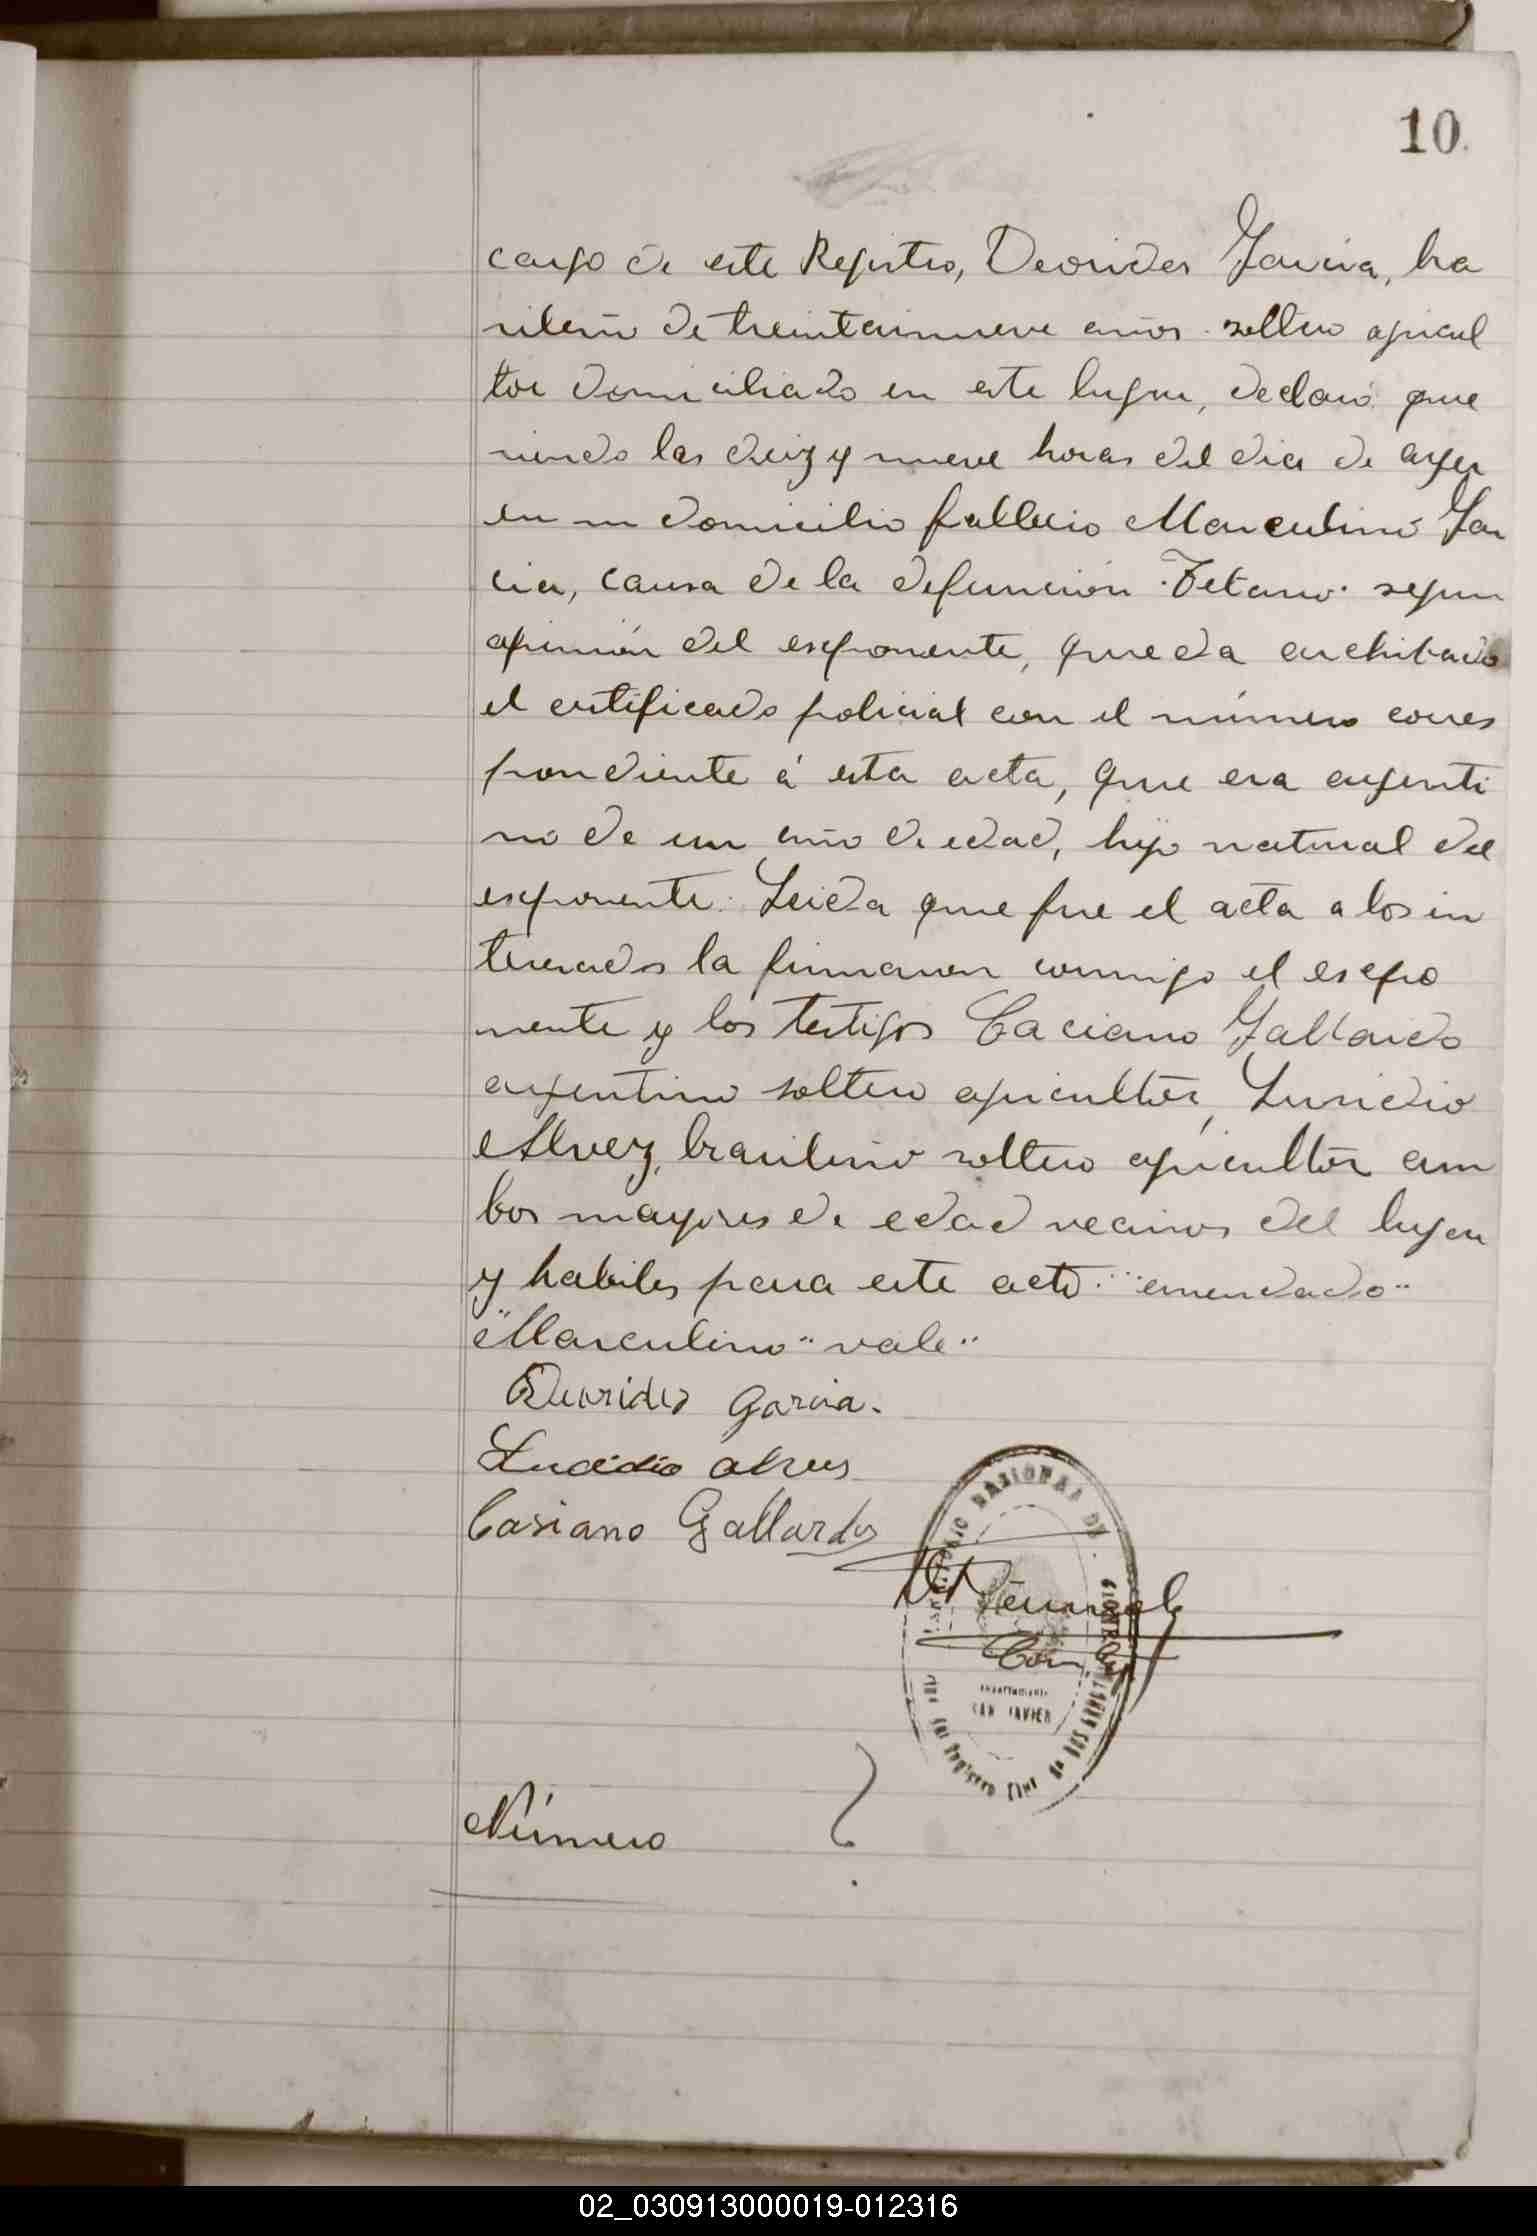 10
cargo de este Registro, Deorides Garcia, bra
sileño de treintainueve años soltero agricul
tor domiciliado en este lugar, declaró que
siendo las diez y nueve horas del dia de ayer
en su domicilio fallecio Marculino Gar
cia, causa de la defuncion Tetano segun
opinion del esponente, queda archibado
el certificado policial con el número corres
pondiente á esta acta, que era argenti
no de un año de edad, hijo natural del
esponente. Leida que fue el acta a los in
teresados la firmaron conmigo el espo
nente y los testigos Caciano Gallardo
argentino soltero agricultor, Lusidio
Alvez, brasileño soltero agricultor am
bos mayores de edad vecinos del lugar
y habiles para este acto "enmendado"
"Marculino" vale"
Deorides Garcia.
Lucidio alves
Casiano Gallardo
NACIONAL DE
MISIONES
Departamento
SAN JAVIER
Registro Civil
Número
02_030913000019-012316